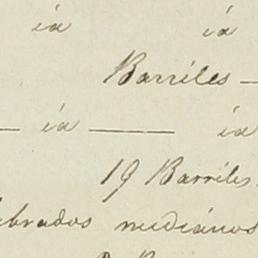 ia ia
Barriles —
— ia — ia
19 Barriles
brados medianos